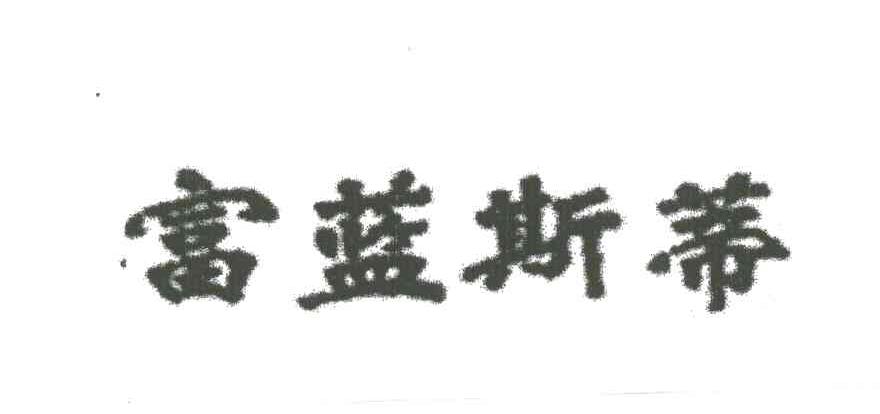 富蓝斯蒂